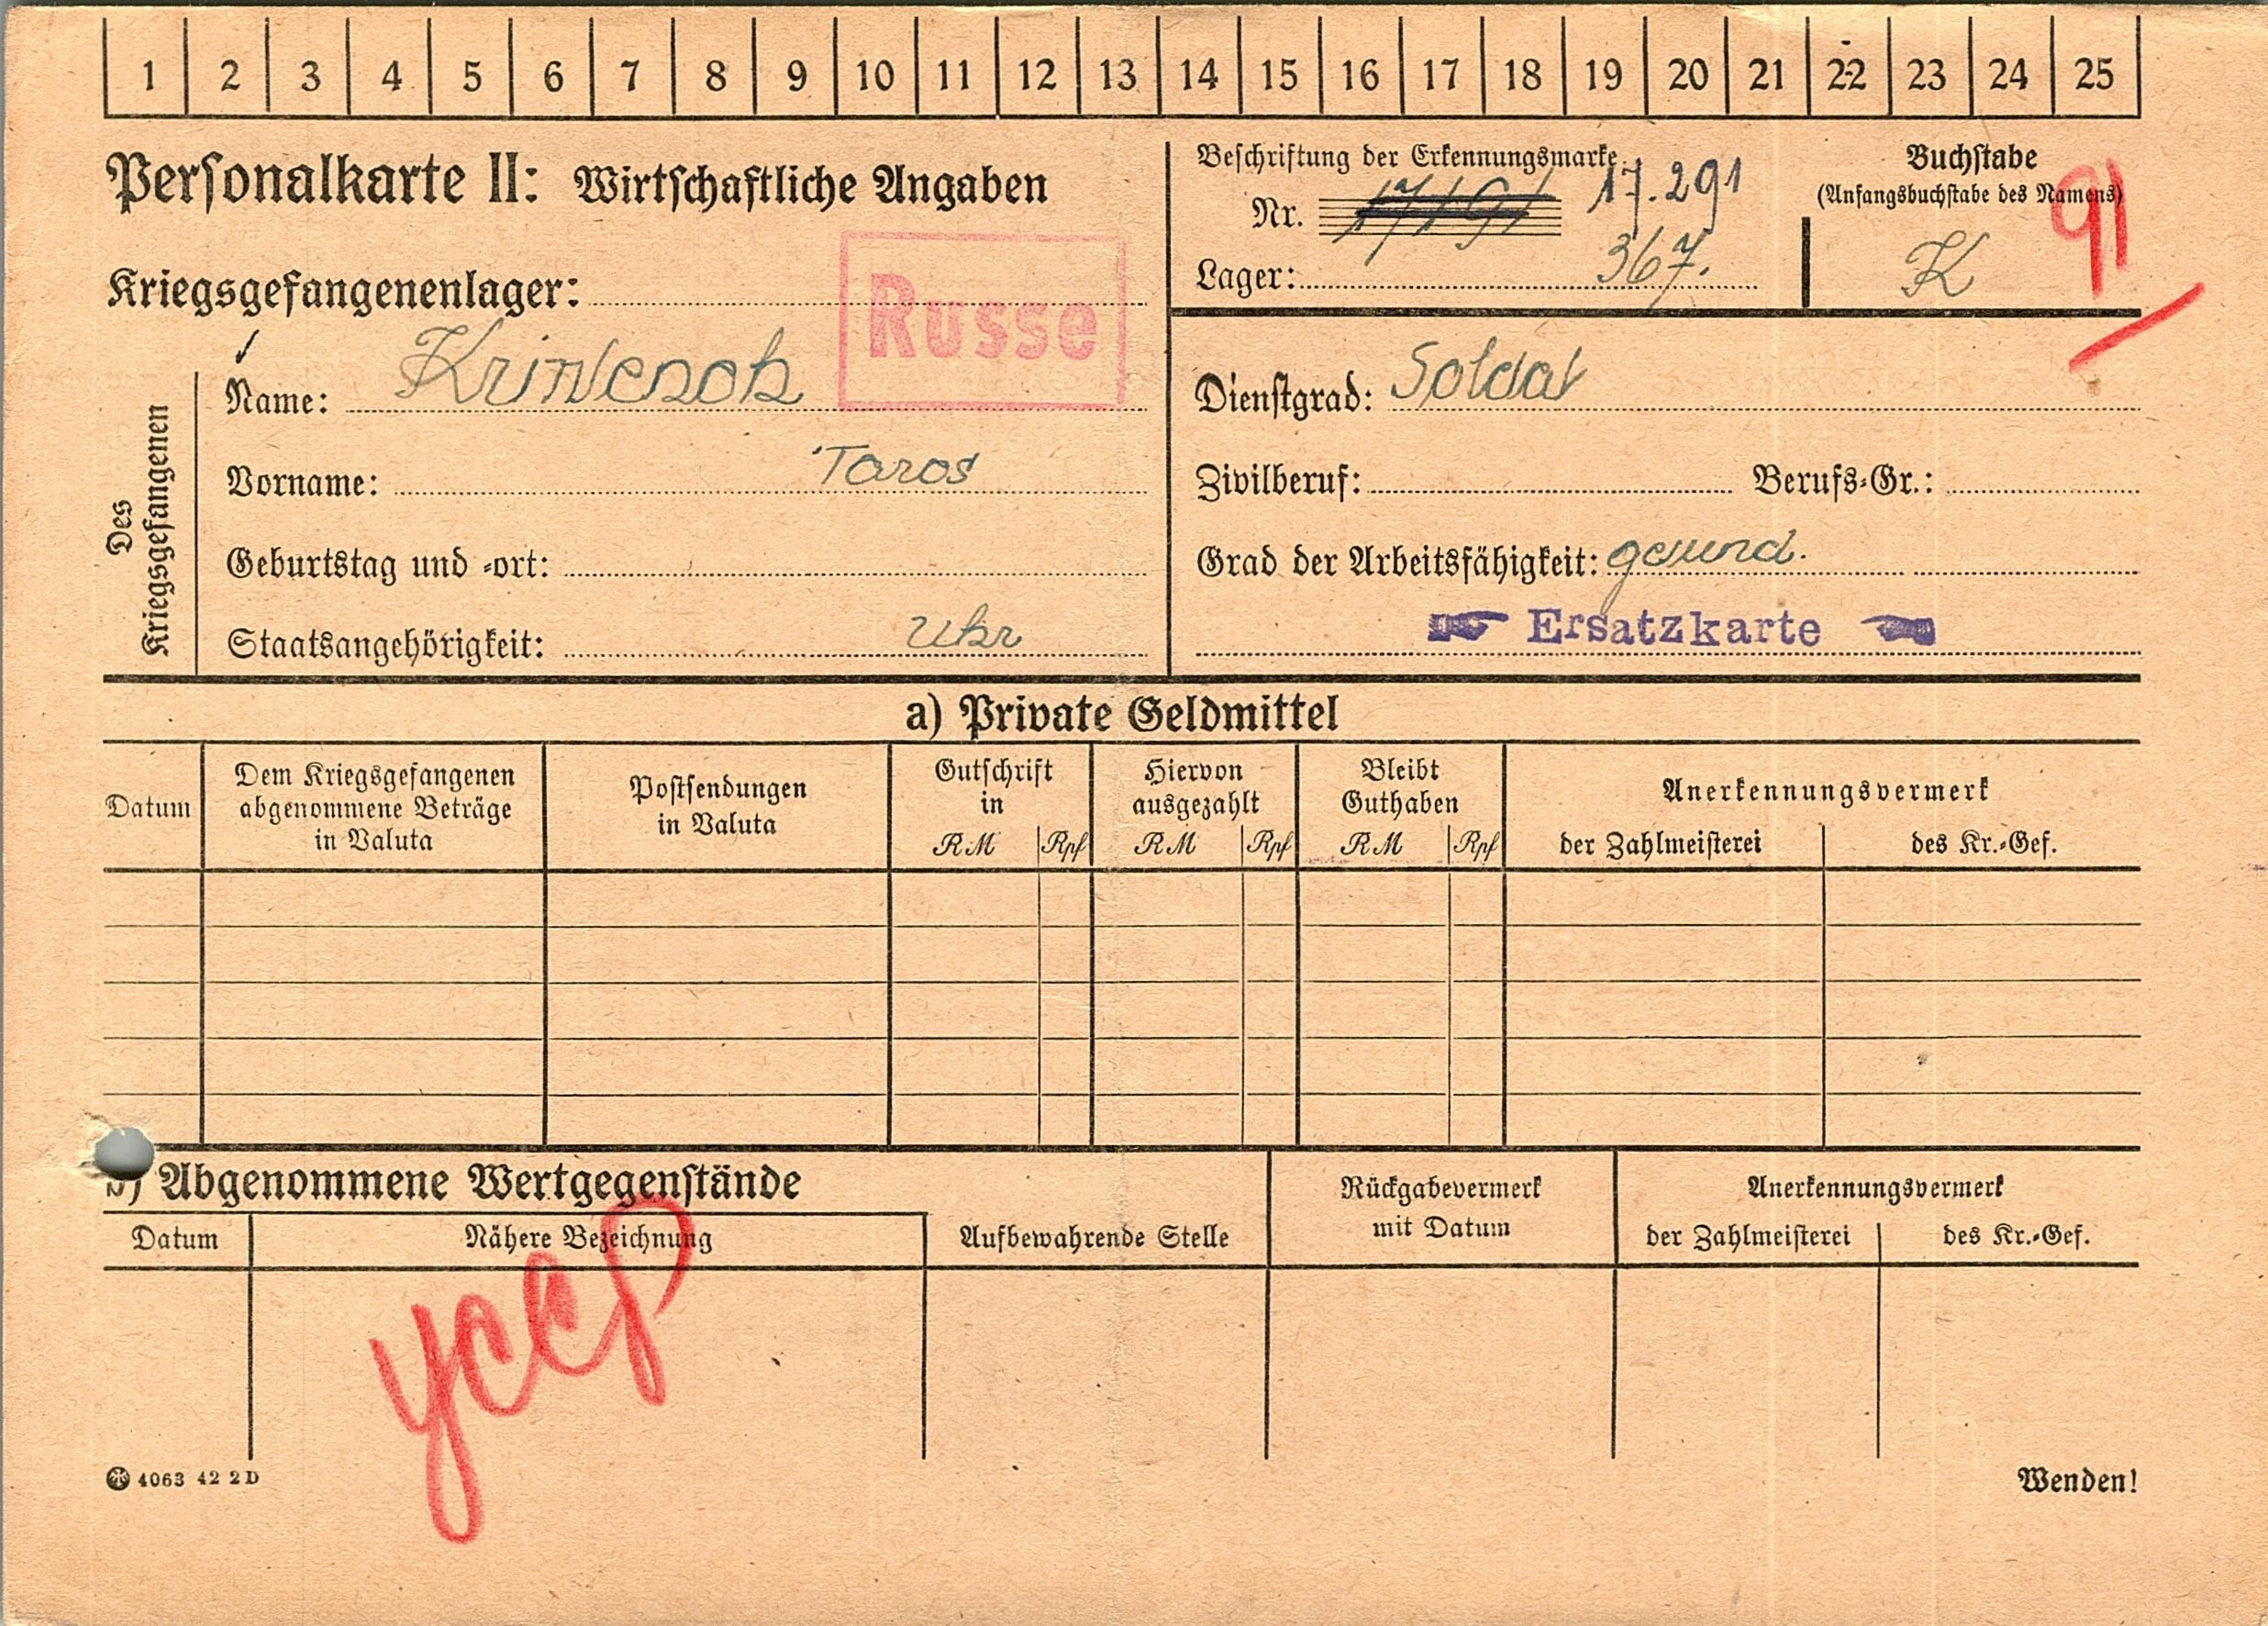 1 2 3 4 5 6 7 8 9 10 11 12 13 14 15 16 17 18 19 20 21 22 23 24 25
Personalkarte II: Wirtschaftliche Angaben
Beschriftung der Erkennungsmarke
Nr. 17191 17.291
Lager: 367.
Buchstabe
(Anfangsbuchstabe des Namens)
K
91
Kriegsgefangenenlager:
Russe
Des Kriegsgefangenen
Name:
Vorname: Taros
Geburtstag und -ort:
Staatsangehörigkeit: Ukr
Dienstgrad: Soldat
Zivilberuf: Berufs-Gr.:
Grad der Arbeitsfähigkeit: gesund.
Ersatzkarte
a) Private Geldmittel
Datum
Dem Kriegsgefangenen
abgenommene Beträge
in Valuta
Postsendungen
in Valuta
Gutschrift
in
RM Rpf
Hiervon
ausgezahlt
RM Rpf
Bleibt
Guthaben
RM Rpf
Anerkennungsvermerk
der Zahlmeisterei des Kr.-Gef.
b) Abgenommene Wertgegenstände
Datum Nähere Bezeichnung
Aufbewahrende Stelle
Rückgabevermerk
mit Datum
Anerkennungsvermerk
der Zahlmeisterei des Kr.-Gef.
усср
4063 42 2 D
Wenden!